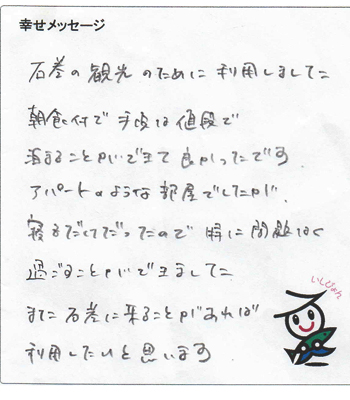 幸せメッセージ
石巻の観光のために利用しました
朝食付で手頃な値段で
泊まることができて良かったです
アパートのような部屋でしたが、
寝るだけだったので特に問題なく
過ごすことができました
また石巻に来ることがあれば
利用したいと思います
いしぴょん